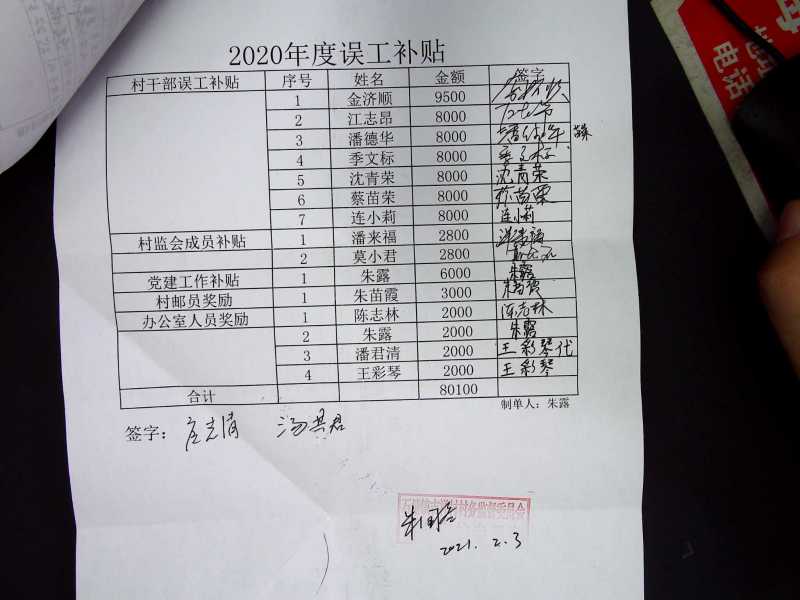 2020年度误工补贴
村干部误工补贴 序号 姓名 金额 签字
1 金济顺 9500
2 江志昂 8000
3 潘德华 8000
4 季文标 8000 季文标
5 沈青荣 8000 沈青荣
6 蔡苗荣 8000 蔡苗荣
7 连小莉 8000 连小莉
村监会成员补贴 1 潘来福 2800 潘来福
2 莫小君 2800
党建工作补贴 1 朱露 6000 朱露
村邮员奖励 1 朱苗霞 3000 朱苗霞
办公室人员奖励 1 陈志林 2000 陈志林
2 朱露 2000 朱露
3 潘君清 2000 王彩琴代
4 王彩琴 2000 王彩琴
合计 80100
制单人：朱露
签字：
村务监督委员会
2021. 2. 3
电话